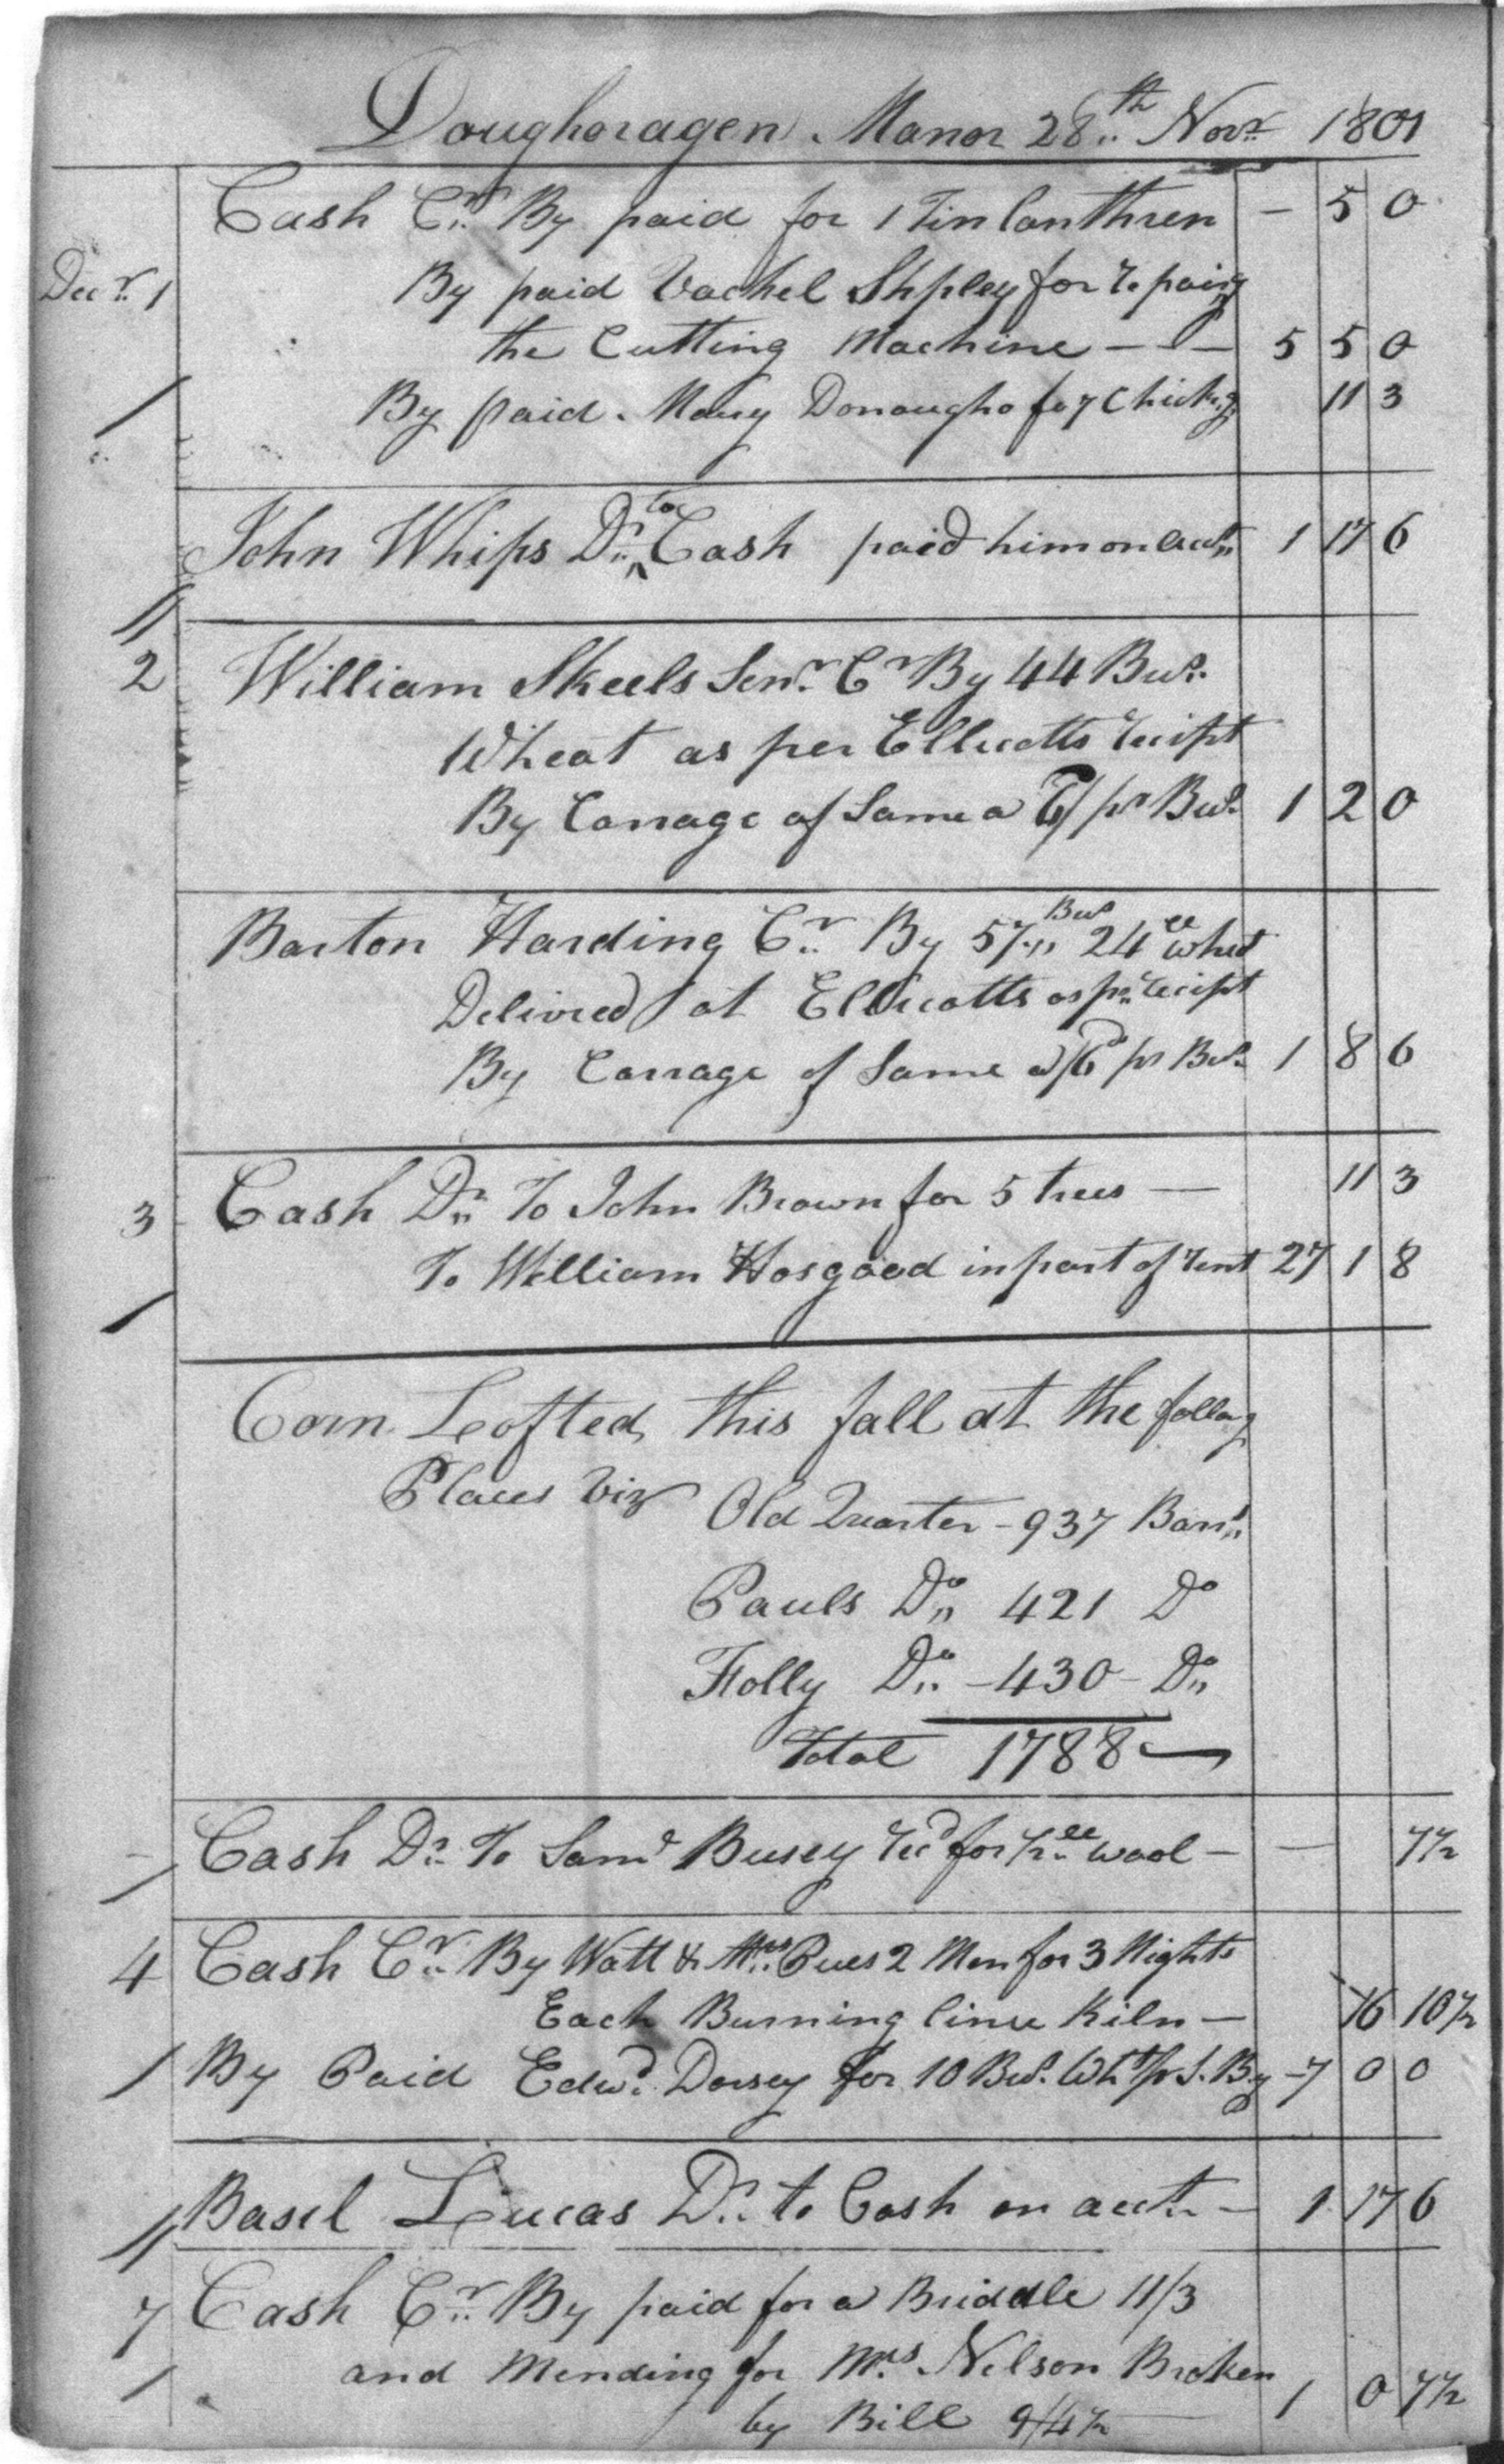 Doughoragen Manor 28th Novr 1801
Cash Cr By paid for 1 Tin lanthren - 5 0
Decr 1 By paid Vachel Shpley for repairg
the Cutting Machine - - - 5 5 0
By paid Mary Donougho for Chickg 11 3
John Whips Dr to Cash paid him on acct 1 17 6
2 William Skeels Senr Cr By 44 Bus.
Wheat as per Ellicotts recipt
By Carrage of Same a 6/ pr Bus. 1 2 0
Barton Harding Cr By 57 Bus 24 ll whet
Delivred at Ellicotts as pr recipt
By Carrage of Same a /6d pr Bus. 1 8 6
3 Cash Dr To John Brown for 5 trees - 11 3
To William Hosgood in part of rent 27 1 8
Corn Lofted this fall at the follog
Places Viz Old Quarter - 937 Barrs
Pauls Do 421 Do
Folly Do - 430 - Do
Total 1788
Cash Dr To Saml Busey recd for ½ ll wool - - 7½
4 Cash Cr By Watt & Mrs Pues 2 Men for 3 Nights
Each Burning lime Kiln - 16 10½
By Paid Edwd Dorsey for 10 Bus. Wht pr J. By - 7 0 0
Basil Lucas Dr to Cash on acct - 1 17 6
7 Cash Cr By paid for a Briddle 11/3
and Mending for Mrs Nelson Broken
by Bill 9/4½ 1 0 7½